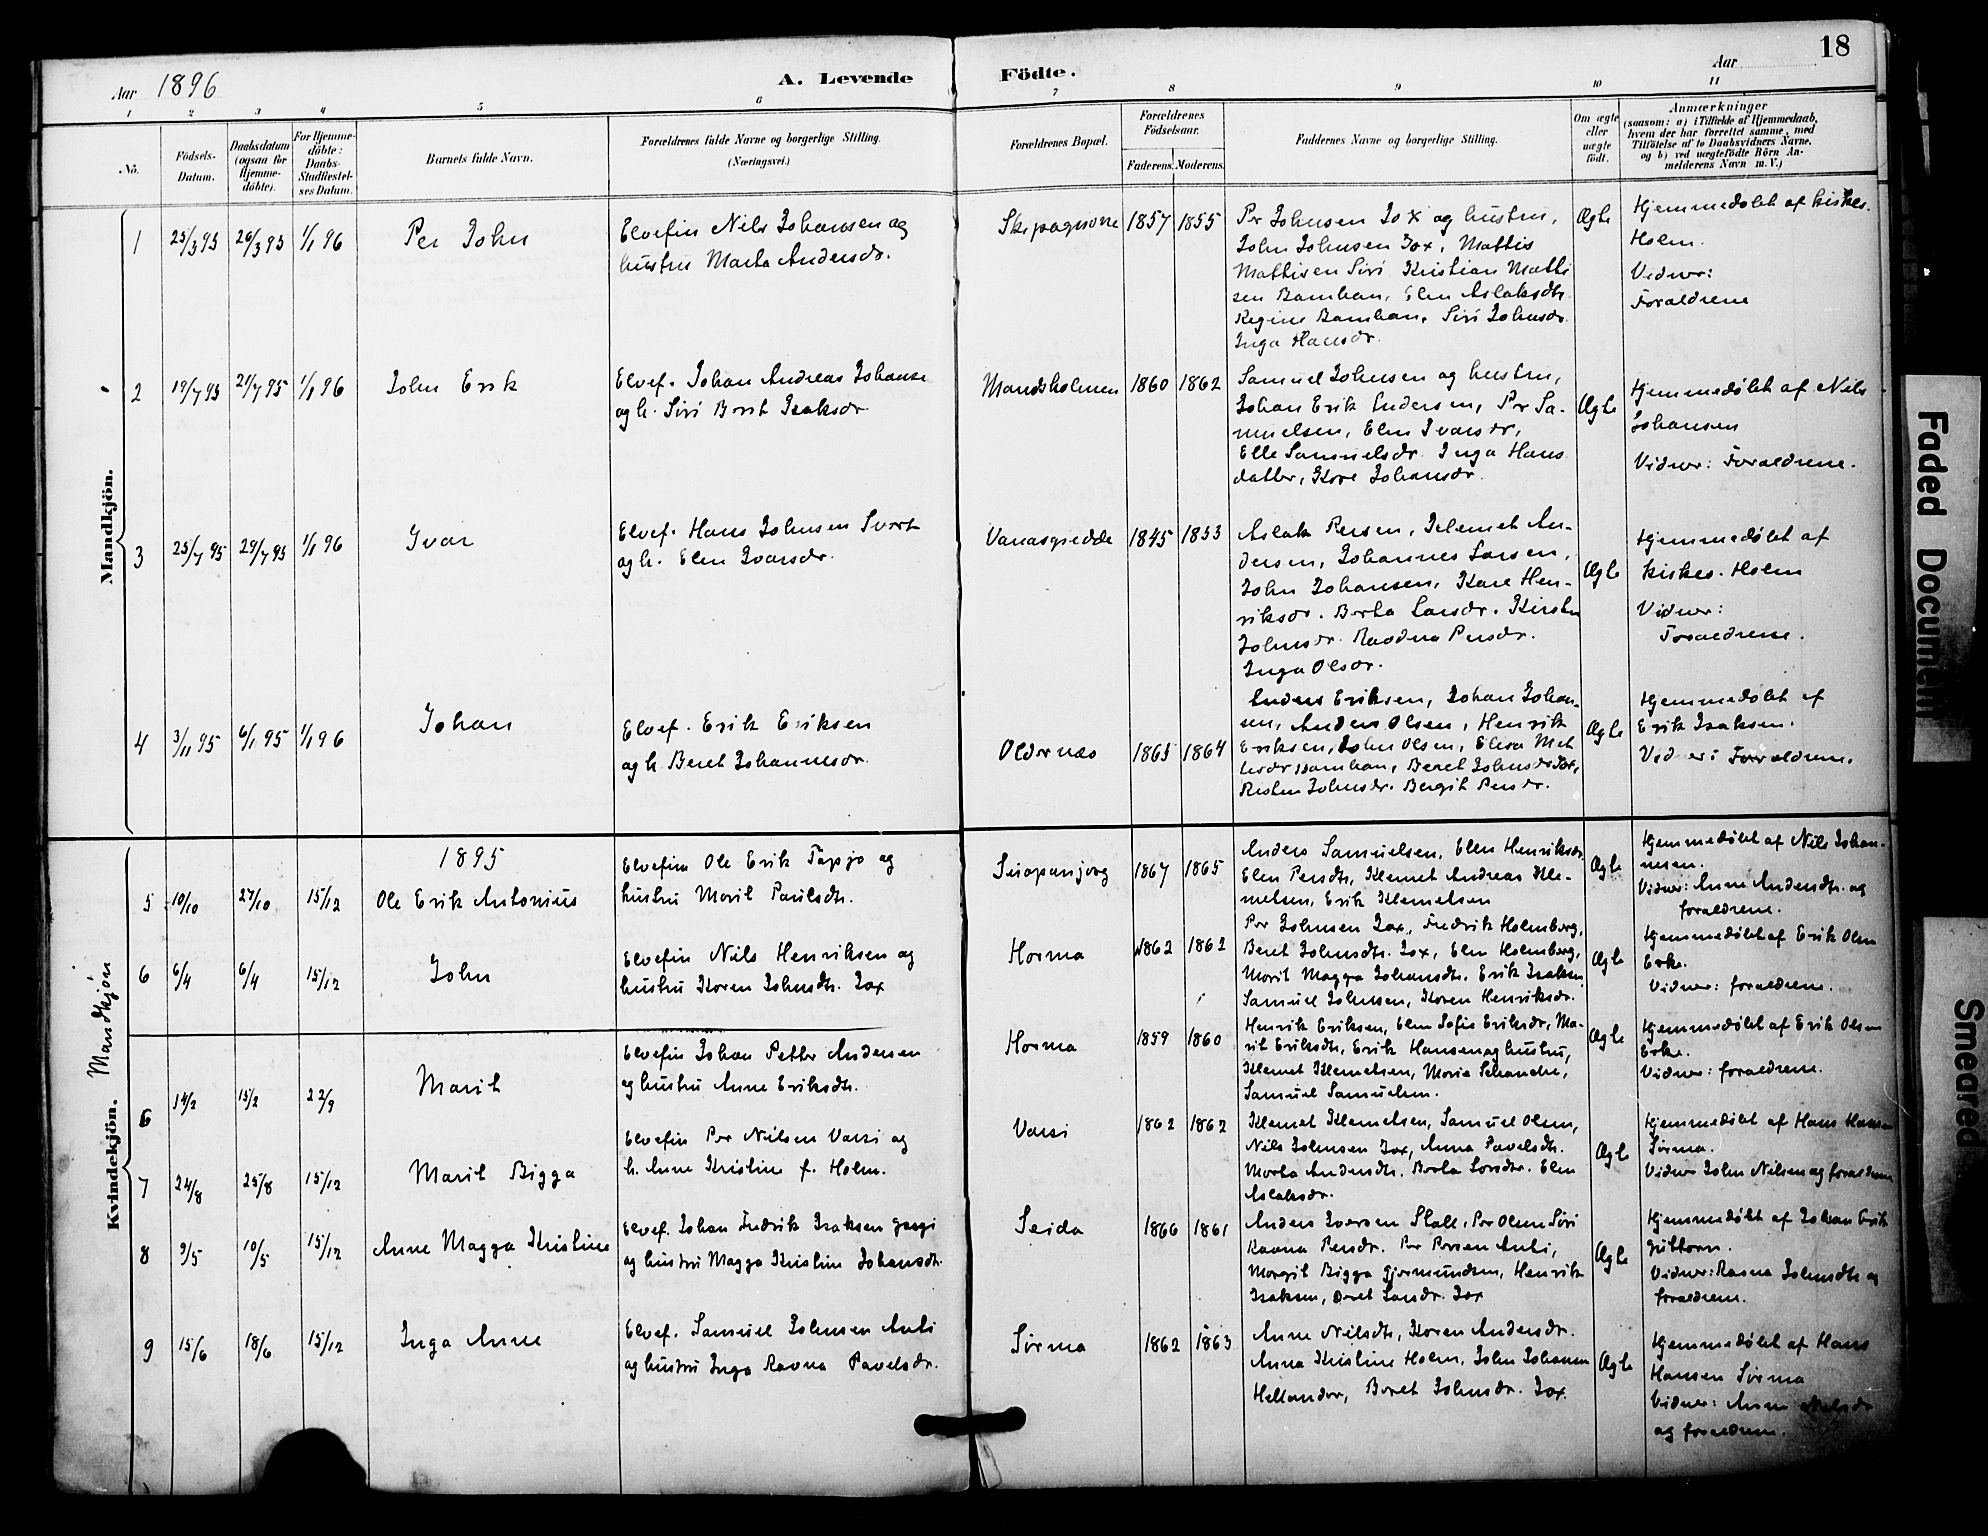 18
Aar 1896
A. Levende
Födte.
Aar
1 2 3 4 5 6 7 8 9 10 11
No.
Födsels-
Datum.
Daabsdatum
(ogsaa for
Hjemme-
döbte).
For Hjemme-
döbte:
Daabs-
Stadfæstel-
ses Datum.
Barnets fulde Navn.
Forældrenes fulde Navne og borgerlige Stilling.
(Næringsvei.)
Forældrenes Bopæl.
Forældrenes
Födselsaar.
Faderens. Moderens.
Faddernes Navne og borgerlige Stilling.
Om ægte
eller
uægte
födt.
Anmærkninger
(saasom: a) i Tilfælde af Hjemmedaab,
hvem der har forrettet samme, med
Tilföielse af to Daabsvidners Navne,
og b) ved uægtefödte Börn An-
melderens Navn m. V.)
Mandkjön.
1 25/3 95 26/3 95 1/1 96 Per John
Elvefin Nils Johansen og
hustru Marta Andersdr.
1857 1855
Per Johnsen Jox og hustru,
John Johnsen Jox, Mattis
Mathisen Siri Kristian Mathi
sen Bamhan, Elen Aslaksdtr
Regine Bamhan, Siri Johnsdr.
Inga Hansdr.
Ægte
Hjemmedøbt af
Holm.
Vidner:
Forældrene
2 19/7 95 21/7 95 1/1 96 John Erik
Elvef. Johan Andreas Johanse
og h. Siri Berit Isaksdr.
Mandsholmen 1860 1862
Samuel Johnsen og hustru,
Johan Erik Andersen, Per Sa-
muelsen, Elen Ivarsdr,
Elle Samuelsdr. Inga Hans
datter, Kore Johansdr.
Ægte
Hjemmedøbt af Nils
Johansen
Vidner: Forældrene.
3 25/7 95 29/7 95 1/1 96 Ivar
Elvef. Hans Johnsen
og h. Elen Ivarsdr.
1845 1853
Aslak Persen, Klemet An-
dersen, Johannes Larsen,
John Johansen, Kare Hen-
riksdr. Berta Larsdr. Kirsten
Johnsdr. Ravdna Persdr.
Inga Olsdr.
Ægte
Hjemmedøbt af
Holm
Vidner:
Forældrene.
4 3/11 95 6/1 95 1/1 96 Johan
Elvef. Erik Eriksen
og h. Beret Johannesdr.
Oldernæs 1865 1864
Anders Eriksen, Johan Johan-
sen, Anders Olsen, Henrik
Eriksen, John Olsen,
Bamhan, Beret Johnsdr Jox,
Risten Johnsdr. Bergit Persdr.
Ægte
Hjemmedøbt af
Erik Isaksen.
Vidner: Forældrene.
Mandkjøn
1895
5 10/10 27/10 15/12 Ole Erik Antonius
Elvefin Ole Erik Tapjo og
hustru Marit Paulsdtr.
1867 1865
Anders Samuelsen, Elen Henriksdr,
Elen Persdtr, Klemet Andreas Kle-
metsen, Erik Klemetsen
Ægte
Hjemmedøbt af Nils Johan-
nesen.
Vidner: Anne Andersdtr. og
forældrene.
6 6/4 6/4 15/12 John
Elvefin Nils Henriksen og
hustru Karen Johnsdtr. Jox
Horma 1862 1862
Per Johnsen Jox, Fredrik Holmberg,
Beret Johnsdtr. Jox, Elen Holmberg,
Marit Magga Johansdtr, Erik Isaksen
Samuel Johnsen, Karen Henriksdr.
Ægte
Hjemmedøbt af Erik Olsen
Erke.
Vidner: forældrene.
Kvindekjön.
6 14/2 15/2 22/9 Marit
Elvefin Johan Petter Andersen
og hustru Anne Eriksdtr.
Horma 1859 1860
Henrik Eriksen, Elen Sofie Eriksdr, Ma-
rit Eriksdtr, Erik Hansen og hustru,
Klemet Klemetsen, Marie Schanche,
Samuel Samuelsen.
Ægte
Hjemmedøbt af Erik Olsen
Erke.
Vidner: forældrene.
7 24/8 25/8 15/12 Marit Bigga
Elvefin Per Nilsen Varsi og
h. Anne Kristine f. Holm.
Varsi 1862 1862
Klemet Klemetsen, Samuel Olsen,
Nils Johnsen Jox, Anna Pavelsdtr.
Marta Andersdtr. Berta Larsdtr. Elen
Aslaksdr.
Ægte
Hjemmedøbt af Hans Hansen
Sirma.
Vidner John Nilsen og forældrene
8 9/5 10/5 15/12 Anne Magga Kristine
Elvef. Johan Fredrik Isaksen
og hustru Magga Kristine Johansdtr.
Seida 1866 1861
Anders Iversen Stall, Per Olsen Siri
Ravna Persdr. Per Persen Anti,
Margit Bigga Gjermundsen, Henrik
Isaksen, Beret Larsdr. Jox
Ægte
Hjemmedøbt af Johan Erik
Guttorm.
Vidner: Ravna Johnsdtr og
forældrene.
9 15/6 18/6 15/12 Inga Anne
Elvef. Samuel Johnsen Anti
og hustru Inga Ravna Pavelsdr.
Sirma 1862 1863
Anne Nilsdtr, Karen Andersdr.
Anna Kristine Holm, John Johansen
Hellander, Beret Johnsdr. Jox.
Ægte
Hjemmedøbt af Hans
Hansen Sirma
Vidner: Anne Nilsdr
og forældrene.
Faded Document
Smeared